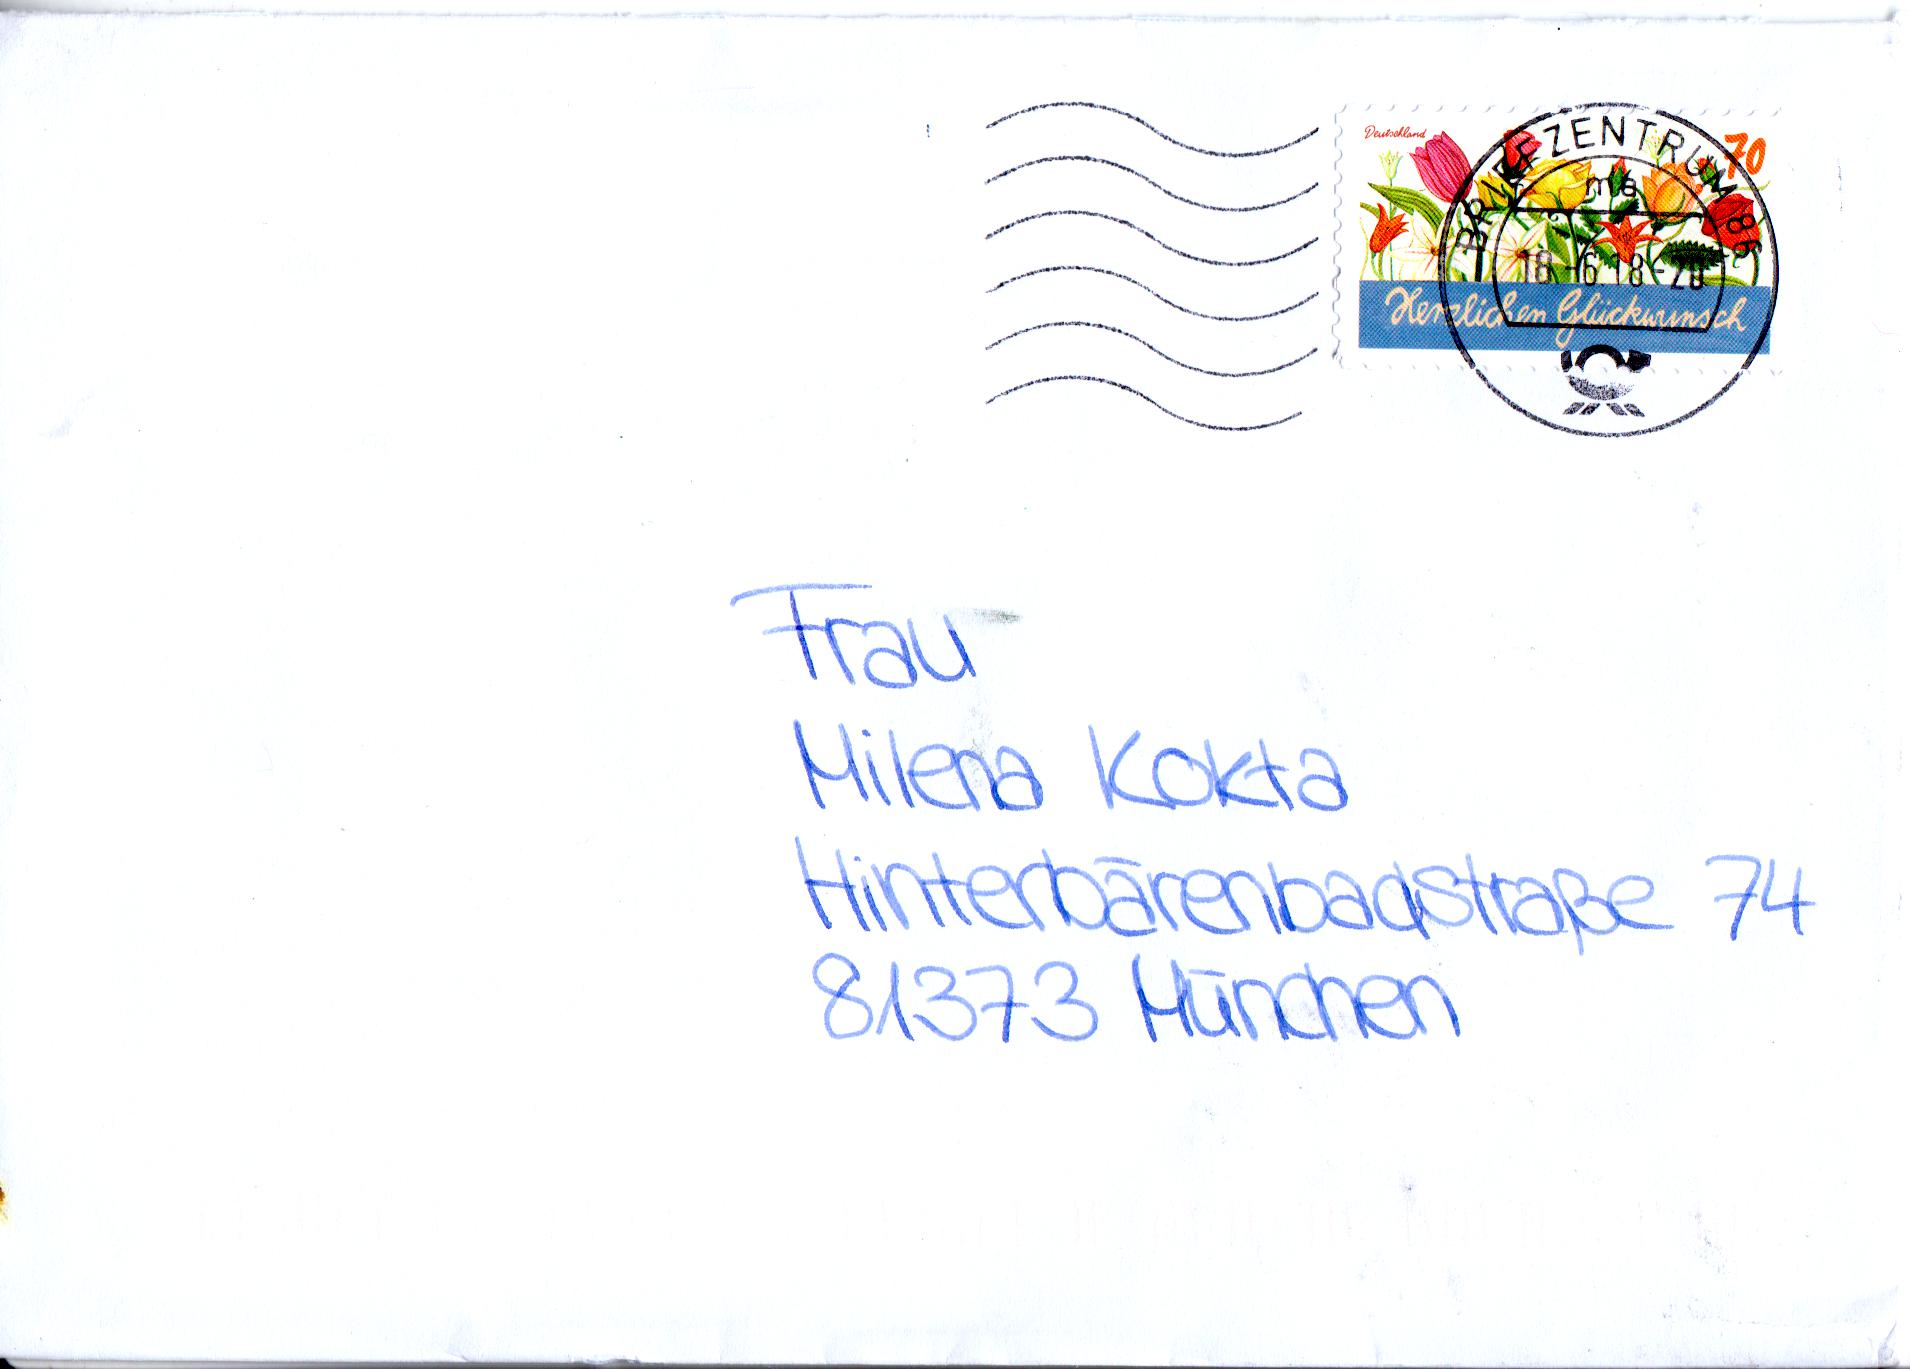 Deutschland
70
BRIEFZENTRUM 86
ma
18.-6.18-20
Herzlichen Glückwunsch
Frau
Milena Kokta
Hinterbärenbadstraße 74
81373 München